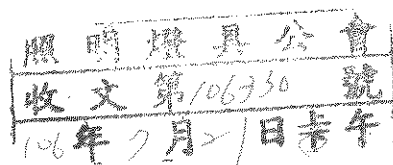 照明燈具公會
收文第106330號
106年7月21日午